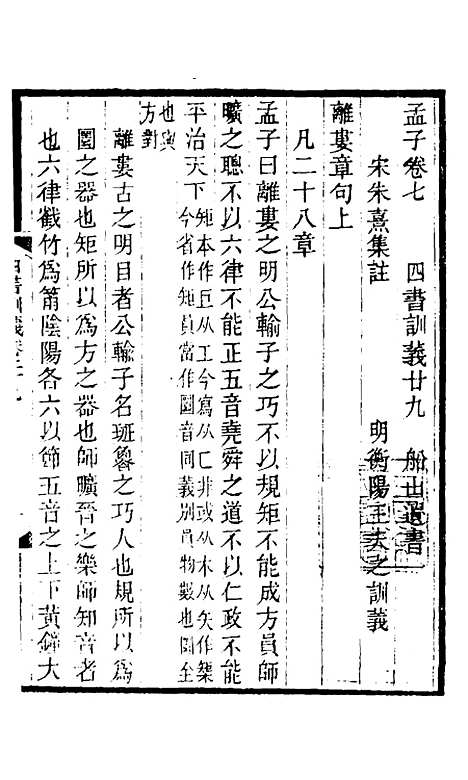 孟子卷七 四書訓義廿九 船山遺書
宋朱熹集註 明衡陽王夫之訓義
離婁章句上
凡二十八章
孟子曰離婁之明公輸子之巧不以規矩不能成方員師
曠之聰不以六律不能正五音堯舜之道不以仁政不能
平治天下
矩本作巨从工今寫从匚非或从木从矢作榘
今省作矩員當作圓音同義別員物數也圓全
也與
方對
離婁古之明目者公輸子名班魯之巧人也規所以爲
圓之器也矩所以爲方之器也師曠晉之樂師知音者
也六律截竹爲筩陰陽各六以節五音之上下黃鐘大